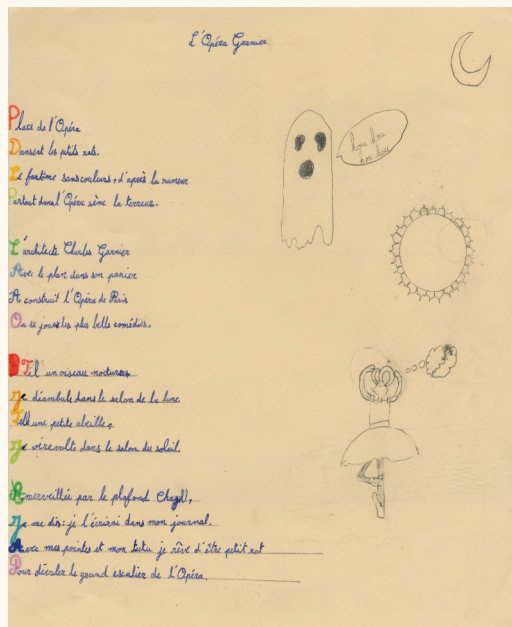 L'Opéra Garnier
Place de l'Opéra
Dansent les petits rats.
Le fantôme sans couleurs, d'après la rumeur
Partout dans l'Opéra sème la terreur.
hou hou
hou hou
L'architecte Charles Garnier
Avec le plan dans son panier
A construit l'Opéra de Paris
On se joue les plus belle comédies.
Tel un oiseau nocturne
Je déambule dans le salon de la lune.
Telle une petite abeille,
Je virevolte dans le salon du soleil.
Emerveillée par le plafond Chagall,
Je me dis: je l'écrirai dans mon journal.
Avec mes pointes et mon tutu je rêve d'être petit rat
Pour dévaler le grand escalier de l'Opéra.